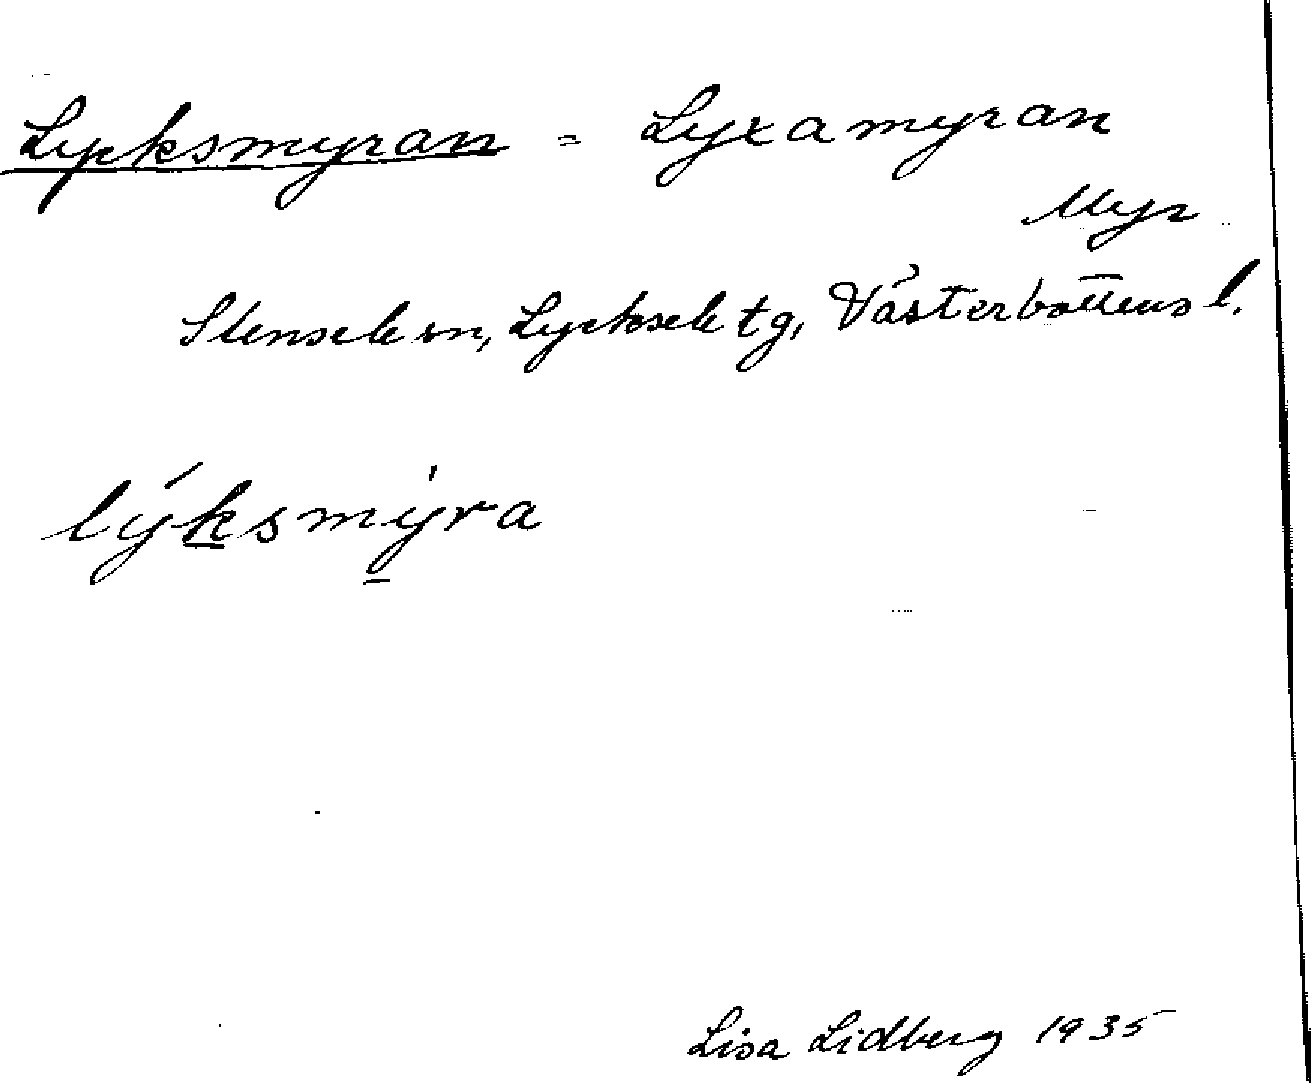 Lycksmyran = Lyxamyran
Myr
Stensele sn, Lycksele tg, Västerbottens l.
lýksmyra
Lisa Lidberg 1935